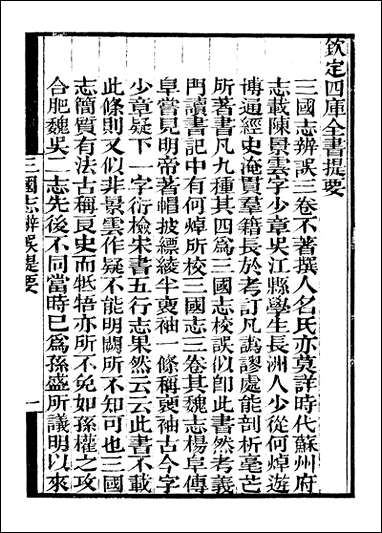 欽定四庫全書提要
三國志辨誤三卷不著撰人名氏亦莫詳時代蘇州府
志載陳景雲字少章吳江縣學生長洲人少從何焯遊
博通經史淹貫羣籍長於考訂凡譌謬處能剖析毫芒
所著書凡九種其四爲三國志校誤似卽此書然考義
門讀書記中有何焯所校三國志三卷其魏志楊阜傳
阜嘗見明帝著㡌披縹綾半褎袖一條稱褎袖古今字
少章疑下一字衍檢宋書五行志果然云云此書不載
此條則又似非景雲作疑不能明闕所不知可也三國
志簡質有法古稱良史而牴牾亦所不免如孫權之攻
合肥魏吳二志先後不同當時已爲孫盛所議明以來
三國志辨誤提要
一